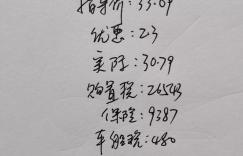 指导价:33.09
优惠:2.3
实际:30.79
购置税:26543
保险:9387
车船税:480